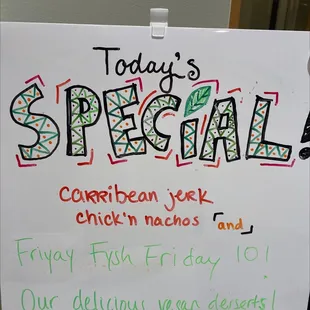 Today's
SPECiAL!
CARRibean jeRK
chick'n nachos "and"
Friyay Fysh Friday 10!
Our delicious vegan desserts!